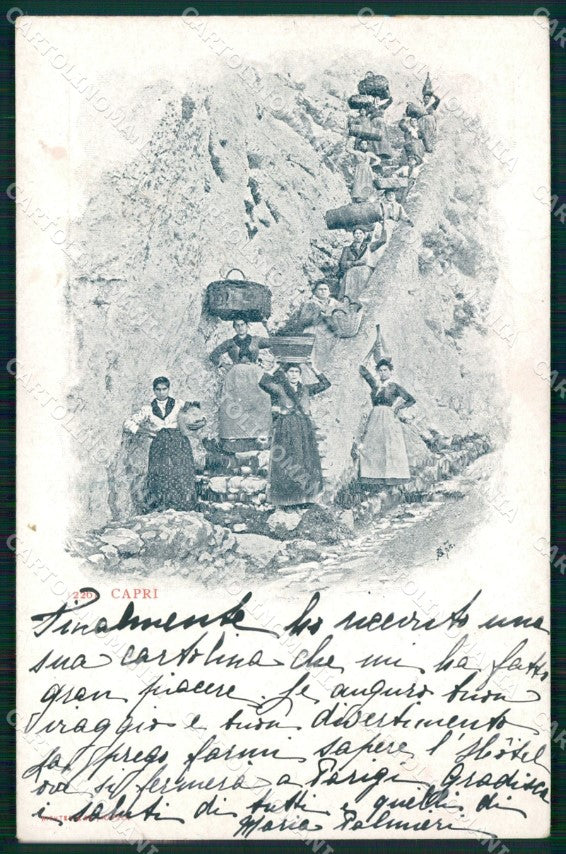 226 CAPRI
Finalmente ho ricevuto una
sua cartolina che mi ha fatto
gran piacere. Le auguro buon
viaggio e buon divertimento
La prego farmi sapere l'Hôtel
ove si fermerà a Parigi. Gradisca
i saluti di tutti e quelli di
Maria Palmieri
CARTOLINOMANIA